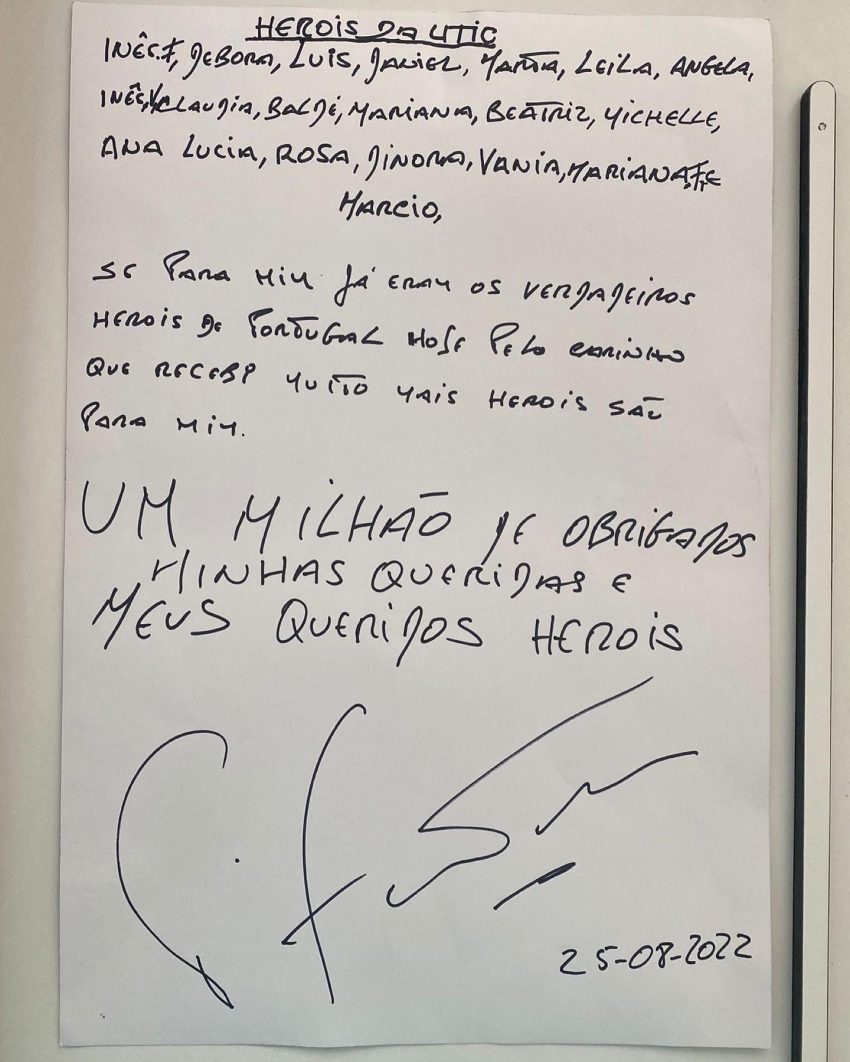 HEROIS DA UTIC
INÊS.F, DEBORA, LUIS, DANIEL, MARTA, LEILA, ANGELA,
INÊS,V, CLAUDIA, BALDÉ, MARIANA, BEATRIZ, MICHELLE,
ANA LUCIA, ROSA, DINORA, VANIA, MARIANA,F, E
MARCIO,
SE PARA MIM JÁ ERAM OS VERDADEIROS
HEROIS DE PORTUGAL HOJE PELO CARINHO
QUE RECEBI MUITO MAIS HEROIS SÃO
PARA MIM.
UM MILHÃO DE OBRIGADOS
MINHAS QUERIDAS E
MEUS QUERIDOS HEROIS
25-08-2022